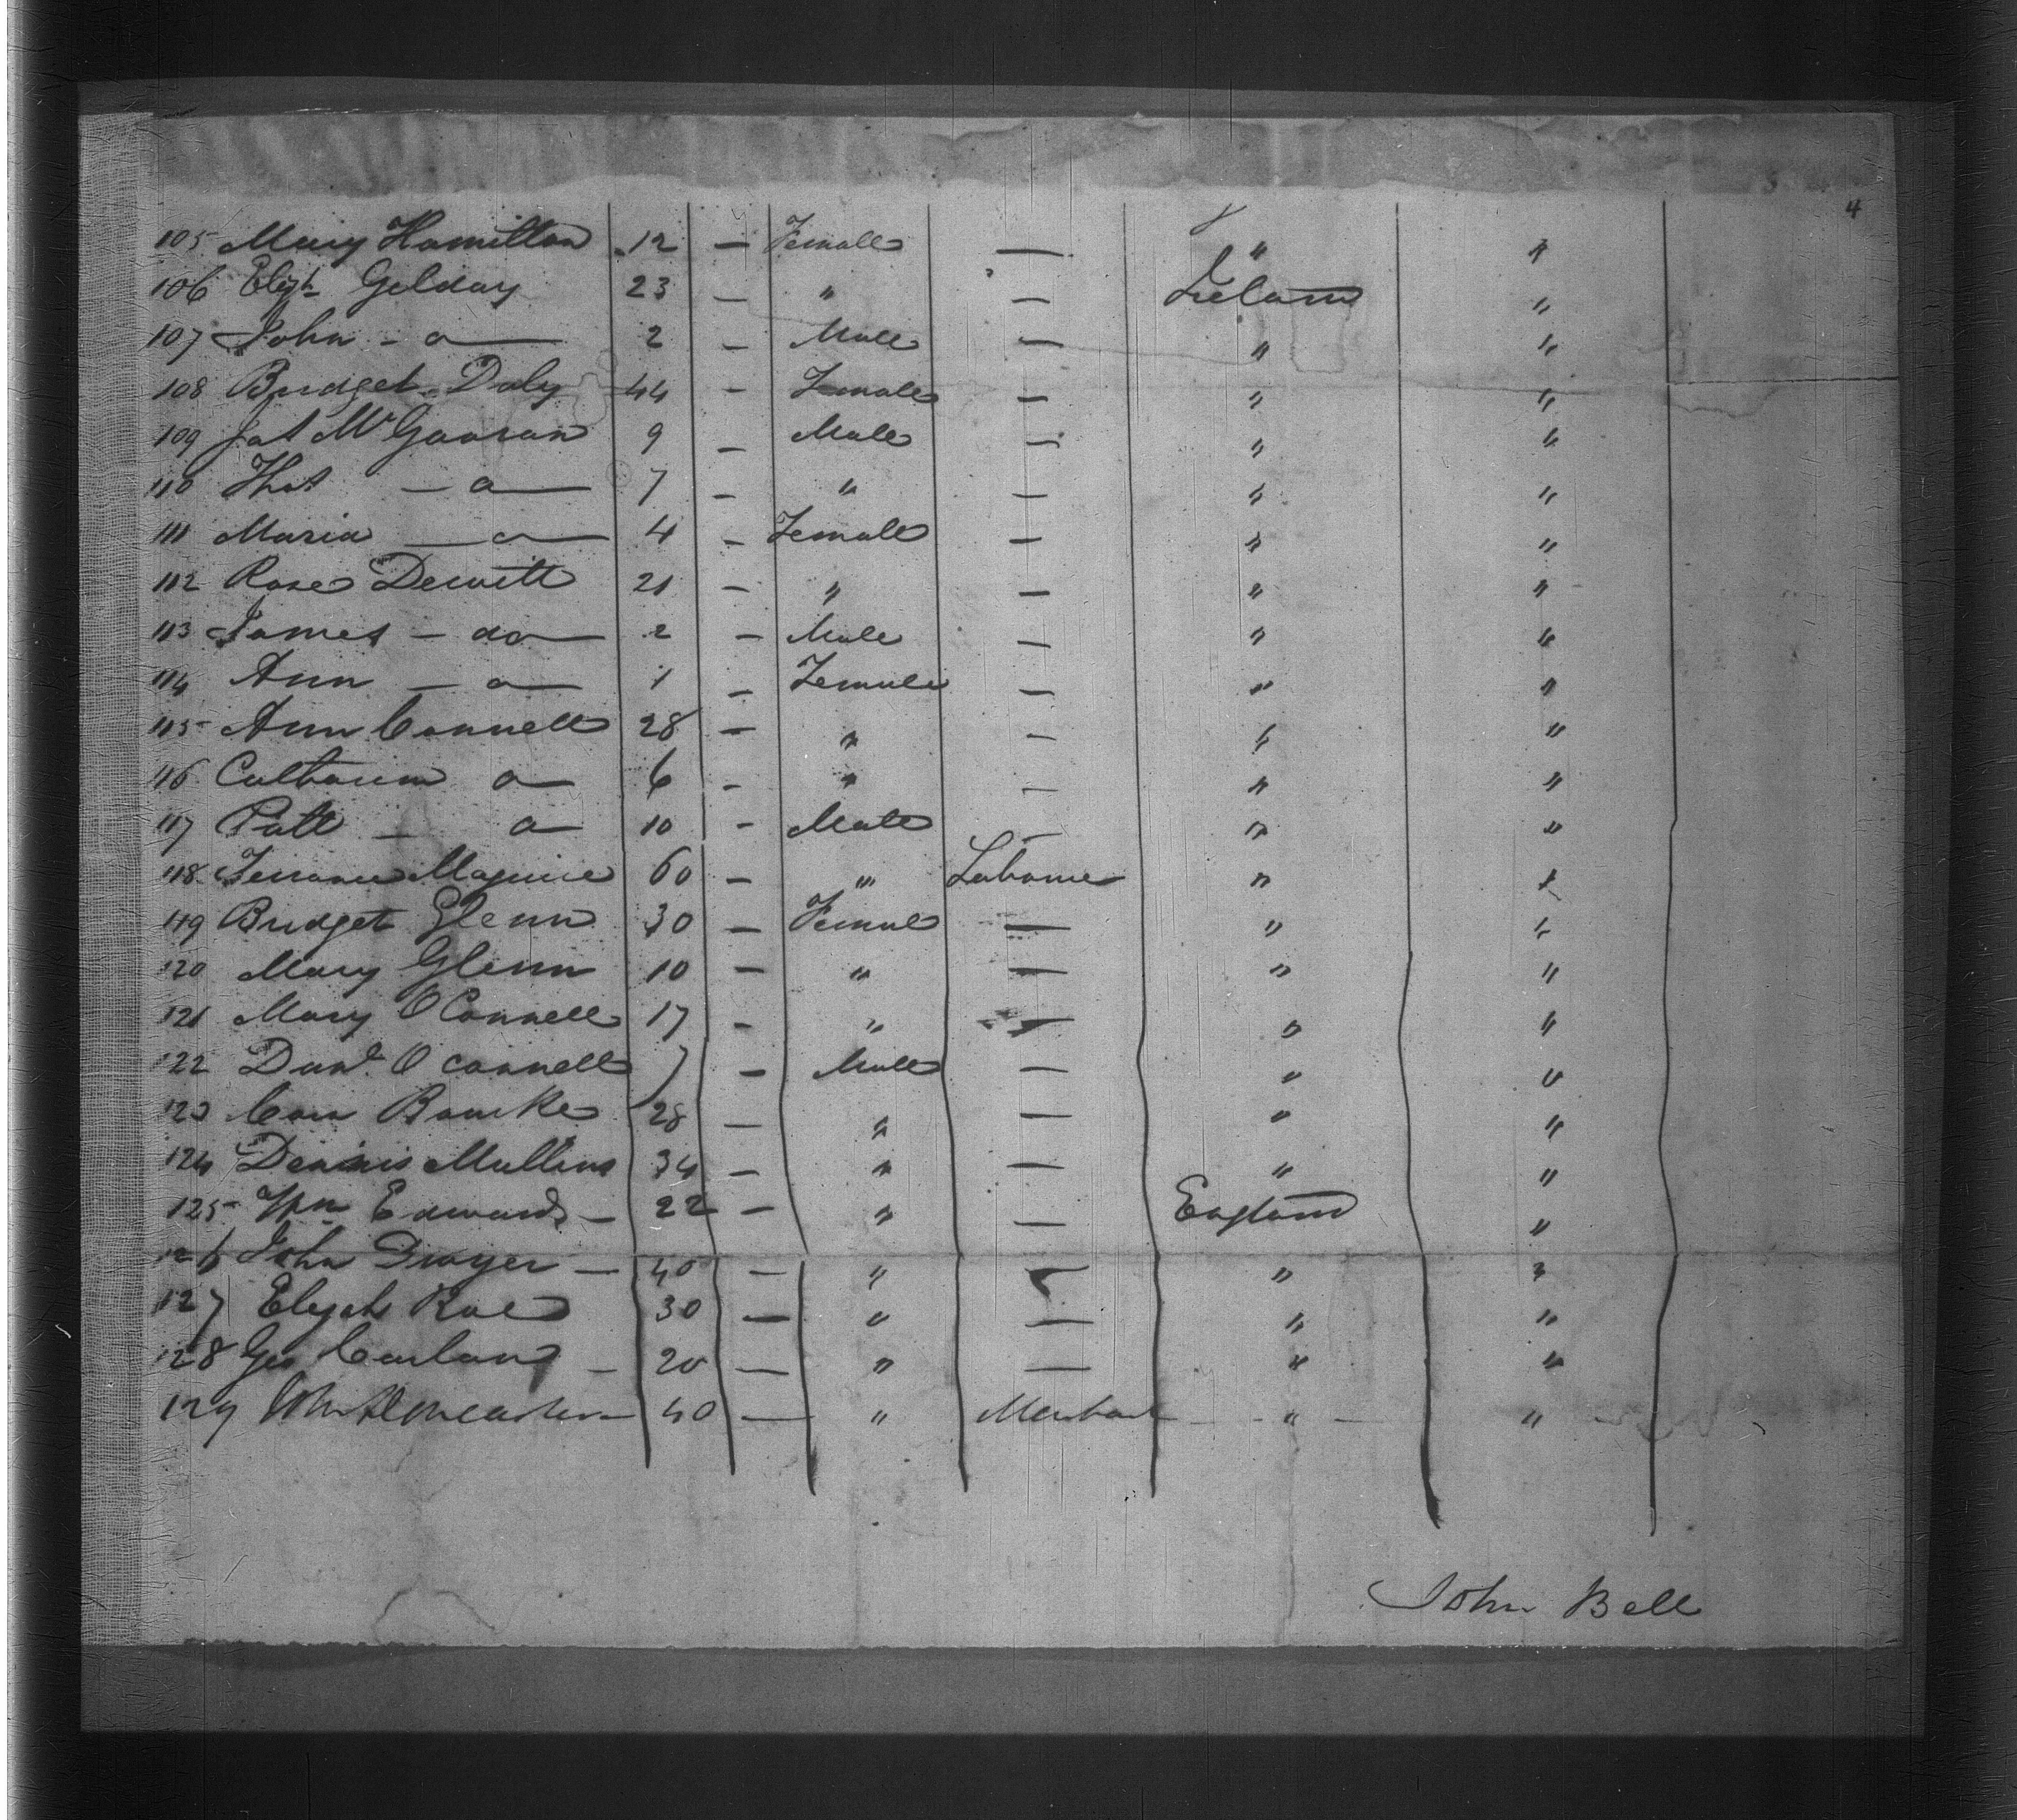 4
105 Mary Hamilton 12 — Female — " "
106 Elizh Gelday 23 — " — Ireland "
107 John - a — 2 — Male — " "
108 Bridget Daly 44 — Female — " "
109 Pat McGouran 9 — Male — " "
110 Thos — a — 7 — " — " "
111 Maria — a — 4 — Female — " "
112 Rose Dewitt 21 — " — " "
113 James — do — 2 — Male — " "
114 Ann — a — 1 — Female — " "
115 Ann Connell 28 — " — " "
116 Catharine a — 6 — " — " "
117 Patt — a — 10 — Male — " "
118 Terrance Maguire 60 — " Labourer " "
119 Bridget Glenn 30 — Female — " "
120 Mary Glenn 10 — " — " "
121 Mary O Connell 17 — " — " "
122 Danl. O Connell 7 — Male — " "
123 Bourke 28 — " — " "
124 Dennis Mullins 34 — " — " "
125 Wm Edwards — 22 — " — England "
126 John Dwyer — 40 — " — " "
127 Elijah Rae 30 — " — " "
128 Geo — 20 — " — " "
129 — 40 — " Merchant — " — "
John Bell